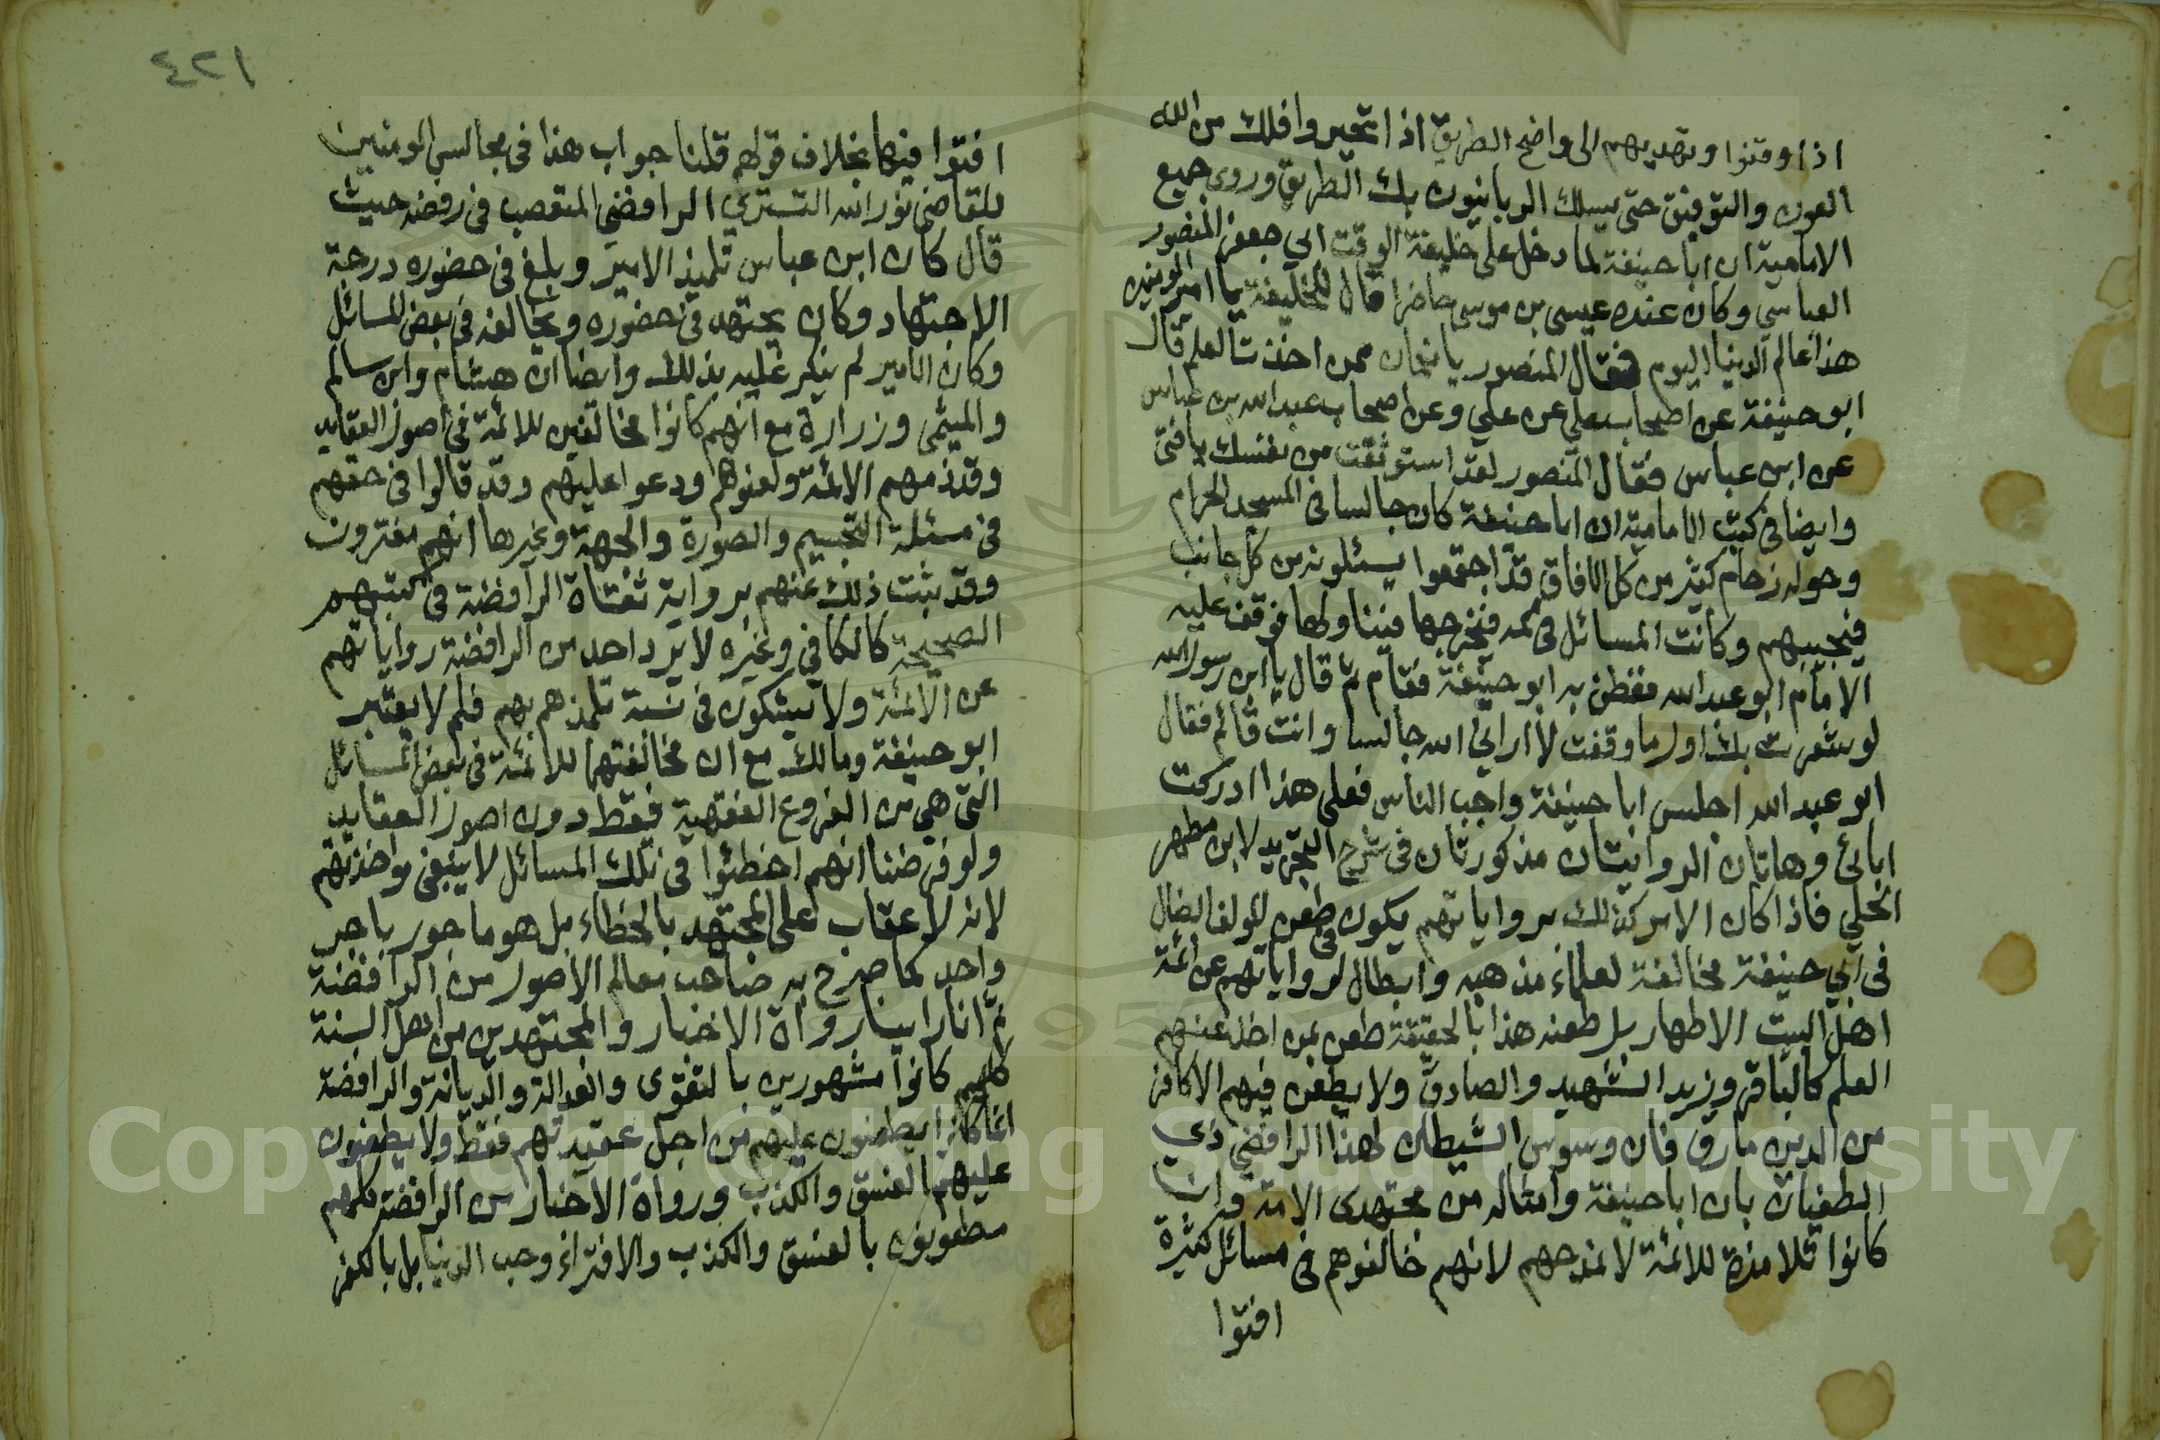 اذا وقفوا وتهديهم الى واضح الطريق اذا تحيروا فلك من الله
العون والتوفيق حتى يسلك الربانيون بك الطريق وروى جميع
الامامية ان ابا حنيفة لما دخل على خليفة الوقت ابي جعفر المنصور
العباسي وكان عنده عيسى بن موسى حاضرا قال للخليفة يا امير المومنين
هذا عالم الدنيا اليوم فقال المنصور يا نعمان ممن اخذت العلم قال
ابو حنيفة عن اصحاب علي عن علي وعن اصحاب عبد الله بن عباس
عن ابن عباس فقال المنصور لقد استوثقت من نفسك يا فتى
وايضا في كتب الامامية ان ابا حنيفة كان جالسا في المسجد الحرام
وحوله زحام كثير من كل الافاق قد اجتمعوا يسئلونه من كل جانب
فيجيبهم وكانت المسائل في كمه فيخرجها فيناولها فوقف عليه
الامام ابو عبد الله ففطن به ابو حنيفة فقام ثم قال يا ابن رسول الله
لو شعرت بك اول ما وقفت لا اراني الله جالسا وانت قائم فقال
ابو عبد الله اجلس ابا حنيفة واجب الناس فعلى هذا ادركت
ابائي وهاتان الروايتان مذكورتان في شرح التجريد لابن مطهر
الحلي فاذا كان الامر كذلك برواياتهم يكون طعن المولف الضال
في ابي حنيفة مخالفة لعلماء مذهبه وابطال لرواياتهم عن ائمة
اهل البيت الاطهار بل طعنه هذا بالحقيقة طعن بمن اخذ عنهم
العلم كالباقر وزيد الشهيد والصادق ولا يطعن فيهم الا كافر
من الدين مارق فان وسوس الشيطان لهذا الرافضي ذي
الطغيان بان ابا حنيفة وامثاله من مجتهدى الامة وان
كانوا تلامذة للائمة لا نمدحهم لانهم خالفوهم في مسائل كثيرة
افتوا
٤٢١
افتوا فيها بخلاف قولهم قلنا جواب هذا في مجالس المومنين
للقاضي نور الله التستري الرافضي المتعصب في رفضه حيث
قال كان ابن عباس تلميذ الامير وبلغ في حضوره درجة
الاجتهاد وكان يجتهد في حضوره ويخالفه في بعض المسائل
وكان الامير لم ينكر عليه بذلك وايضا ان هشام وابن سالم
والميثمى وزرارة مع انهم كانوا مخالفين للائمة في اصول العقايد
وقد ذمهم الائمة ولعنوهم ودعوا عليهم وقد قالوا في حقهم
في مسئلة التجسيم والصورة والجهة وغيرها انهم مفترون
وقد ثبت ذلك عنهم برواية ثقاة الرافضة في كتبهم
الصحيحة كالكافي وغيره لا يرد احد من الرافضة رواياتهم
عن الائمة ولا يشكون في نسبة تلمذهم بهم فلم لا يعتبر
ابو حنيفة ومالك مع ان مخالفتهما للائمة في بعض المسائل
التى هي من الفروع الفقهية فقط دون اصول العقايد
ولو فرضنا انهم اخطئوا في تلك المسائل لا ينبغى مواخذتهم
لانه لا عقاب على المجتهد بالخطاء بل هو ماجور باجر
واحد كما صرح به صاحب معالم الاصول من الرافضة
ثم انا راينا رواة الاخبار والمجتهدين من اهل السنة
كلهم كانوا مشهورين بالتقوى والعدالة والديانة والرافضة
انما كانوا يطعنون عليهم من اجل عقيدتهم فقط ولا يطعنون
عليهم الفسق والكذب ورواة الاخبار من الرافضة كلهم
مطعونون بالفسق والكذب والافتراء وحب الدنيا بل بالكفر
Copyright © King Saud University